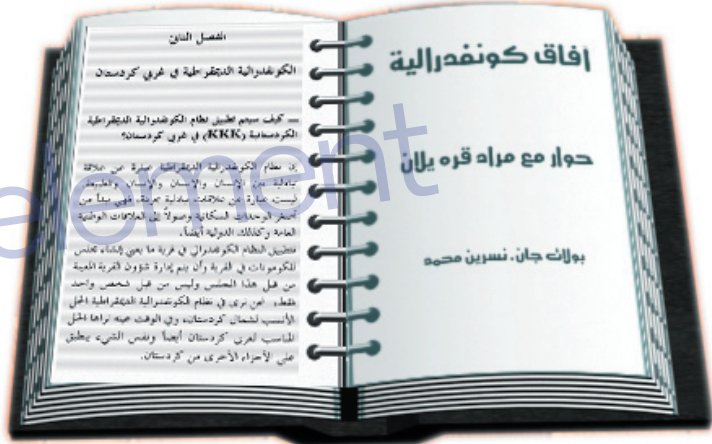 آفاق كونفدرالية
حوار مع مراد قره يلان
بولات جان. نسرين محمد
الفصل الثاني
الكونفدرالية الديمقراطية في غربي كردستان
ـ كيف سيتم تطبيق نظام الكونفدرالية الديمقراطية
الكردستانية (KKK) في غربي كردستان؟
إن نظام الكونفدرالية الديمقراطية عبارة عن علاقة
تبادلية بين الإنسان والإنسان والإنسان والطبيعة.
ليست عبارة عن علاقات تبادلية مجردة، فهي تبدأ من
أصغر الوحدات السكانية وصولاً إلى العلاقات الوطنية
العامة وكذلك الدولية أيضاً.
فتطبيق النظام الكونفدرالي في قرية ما يعني إنشاء مجلس
للكومونات في القرية وأن يتم إدارة شؤون القرية المعينة
من قبل هذا المجلس وليس من قبل شخص واحد
فقط. نحن نرى في نظام الكونفدرالية الديمقراطية الحل
الأنسب لشمال كردستان، وفي الوقت عينه نراها الحل
المناسب لغربي كردستان أيضاً ونفس الشيء ينطبق
على الأجزاء الأخرى من كردستان.
element